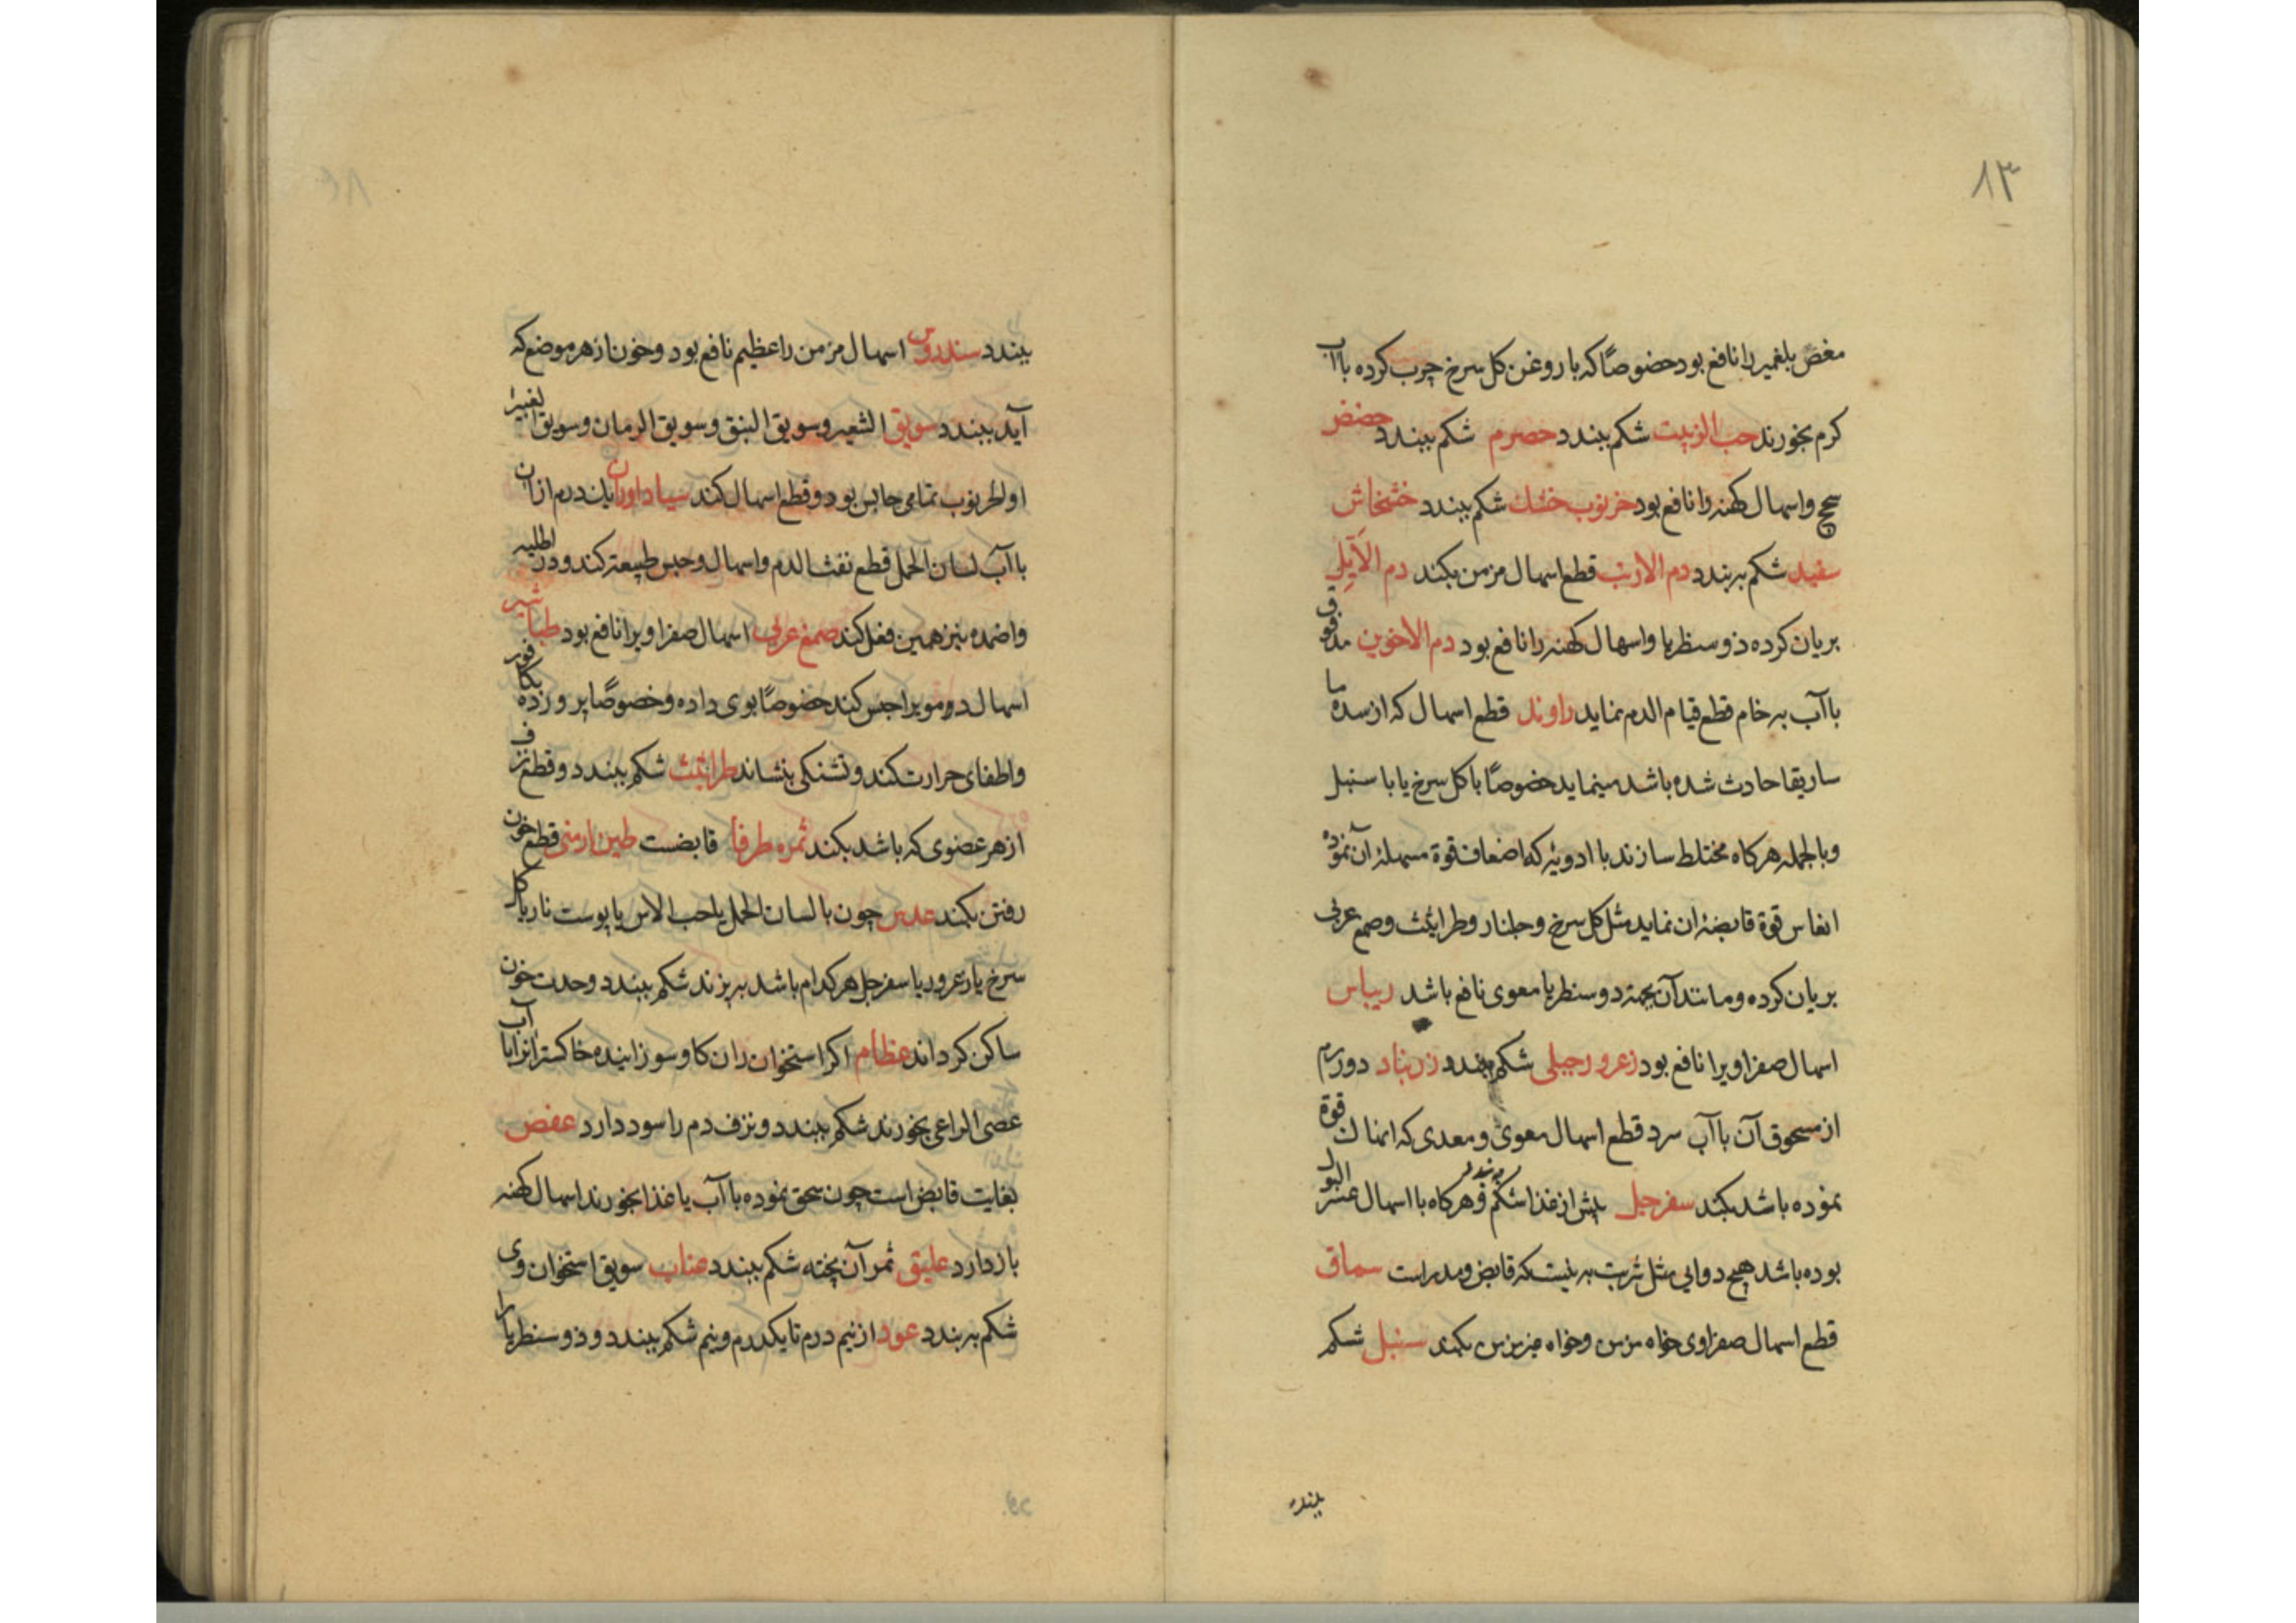 ۸۳
مغص بلغمیرا نافع بود خصوصًا که با روغن کل سرخ چرب کرده باآب
کرم بخورند حب الزبیت شکم ببندد حصرم شکم ببندد حضض
سحج واسهال کهنه را نافع بود خرنوب خشک شکم ببندد خشخاش
سفید شکم بربندد دم الارنب قطع اسهال مزمن بکند دم الآیل
بریان کرده ذوسنطریا واسهال کهنه را نافع بود دم الاخوین
باآب به خام قطع قیام الدم نماید راوند قطع اسهال که از سده ما
ساریقا حادث شده باشد مینماید خصوصًا با کل سرخ یا با سنبل
وبالجمله هرکاه مختلط سازند با ادویۀ که اضعاف قوة مسهلۀ آن نموده
انعاس قوة قابضۀ ان نماید مثل کل سرخ وجلنار وطراثیث وصمغ عربی
بریان کرده ومانند آن بجهة دوسنطریا معوی نافع باشد ریباس
اسهال صفراویرا نافع بود زعرور جبلی شکم ببندد زرنباد دو درم
از مسحوق آن باآب سرد قطع اسهال معوی ومعدی که قوة
نموده باشد بکند سفرجل پیش از غذا شکم ببندد وهرکاه با اسهال عسر البول
بوده باشد هیچ دوایی مثل شربت به نیست که قابض ومدر است سماق
قطع اسهال صفراوی خواه مزمن وخواه غیر مزمن بکند سنبل شکم
ببندد
ببندد سندروس اسهال مزمن را عظیم نافع بود وخون از هر موضع که
آید ببندد سویق الشعیر وسویق النبق وسویق الرمان وسویق الغبیرا
اوالخرنوب تمامی حابس بود وقطع اسهال کند سیاداوران یکدرم از ان
باآب لسان الحمل قطع نفث الدم واسهال وحبس طبیعة کند ودر اطلیه
واضمده نیز همین فعل کند صمغ عربی اسهال صفراویرا نافع بود طباشیر
اسهال دمویرا حبس کند خصوصًا بوی داده وخصوصًا پرورده بکافور
واطفای حرارت کند وتشنکی بنشاند طراثیث شکم ببندد وقطع نزف
از هر عضوی که باشد بکند ثمره طرفا قابضست طین ارمنی قطع خون
رفتن بکند عدس چون با لسان الحمل یا حب الاس یا پوست نار یا کل
سرخ یا زعرور یا سفرجل هرکدام باشد بپزند شکم ببندد وحدت خون
ساکن کرداند عظام اکر استخوان ران کاو سوزانیده خاکستر انرا با آب
عصی الراعی بخورند شکم ببندد ونزف دم را سود دارد عفص
بغایت قابض است چون سحق نموده باآب یا غذا بخورند اسهال کهنه
بازدارد علیق ثمر آن پخته شکم ببندد عناب سویق استخوان وی
شکم بربندد عود از نیم درم تا یکدرم ونیم شکم ببندد وذوسنطریا را